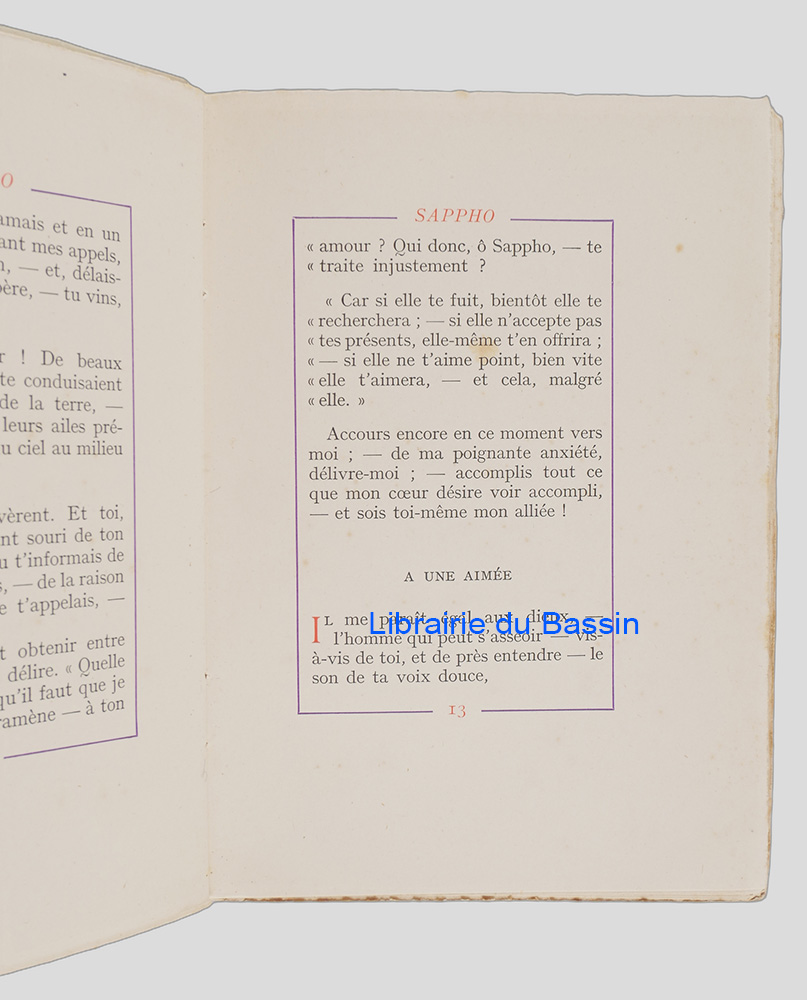 O
amais et en un
ant mes appels,
— et, délais-
père, — tu vins,
r ! De beaux
te conduisaient
de la terre, —
leurs ailes pré-
u ciel au milieu
vèrent. Et toi,
nt souri de ton
u t'informais de
s, — de la raison
e t'appelais, —
t obtenir entre
délire. « Quelle
qu'il faut que je
ramène — à ton
SAPPHO
« amour ? Qui donc, ô Sappho, — te
« traite injustement ?
« Car si elle te fuit, bientôt elle te
« recherchera ; — si elle n'accepte pas
« tes présents, elle-même t'en offrira ;
« — si elle ne t'aime point, bien vite
« elle t'aimera, — et cela, malgré
« elle. »
Accours encore en ce moment vers
moi ; — de ma poignante anxiété,
délivre-moi ; — accomplis tout ce
que mon cœur désire voir accompli,
— et sois toi-même mon alliée !
A UNE AIMÉE
IL me paraît égal aux dieux, —
l'homme qui peut s'asseoir — vis-
à-vis de toi, et de près entendre — le
son de ta voix douce,
13
Librairie du Bassin